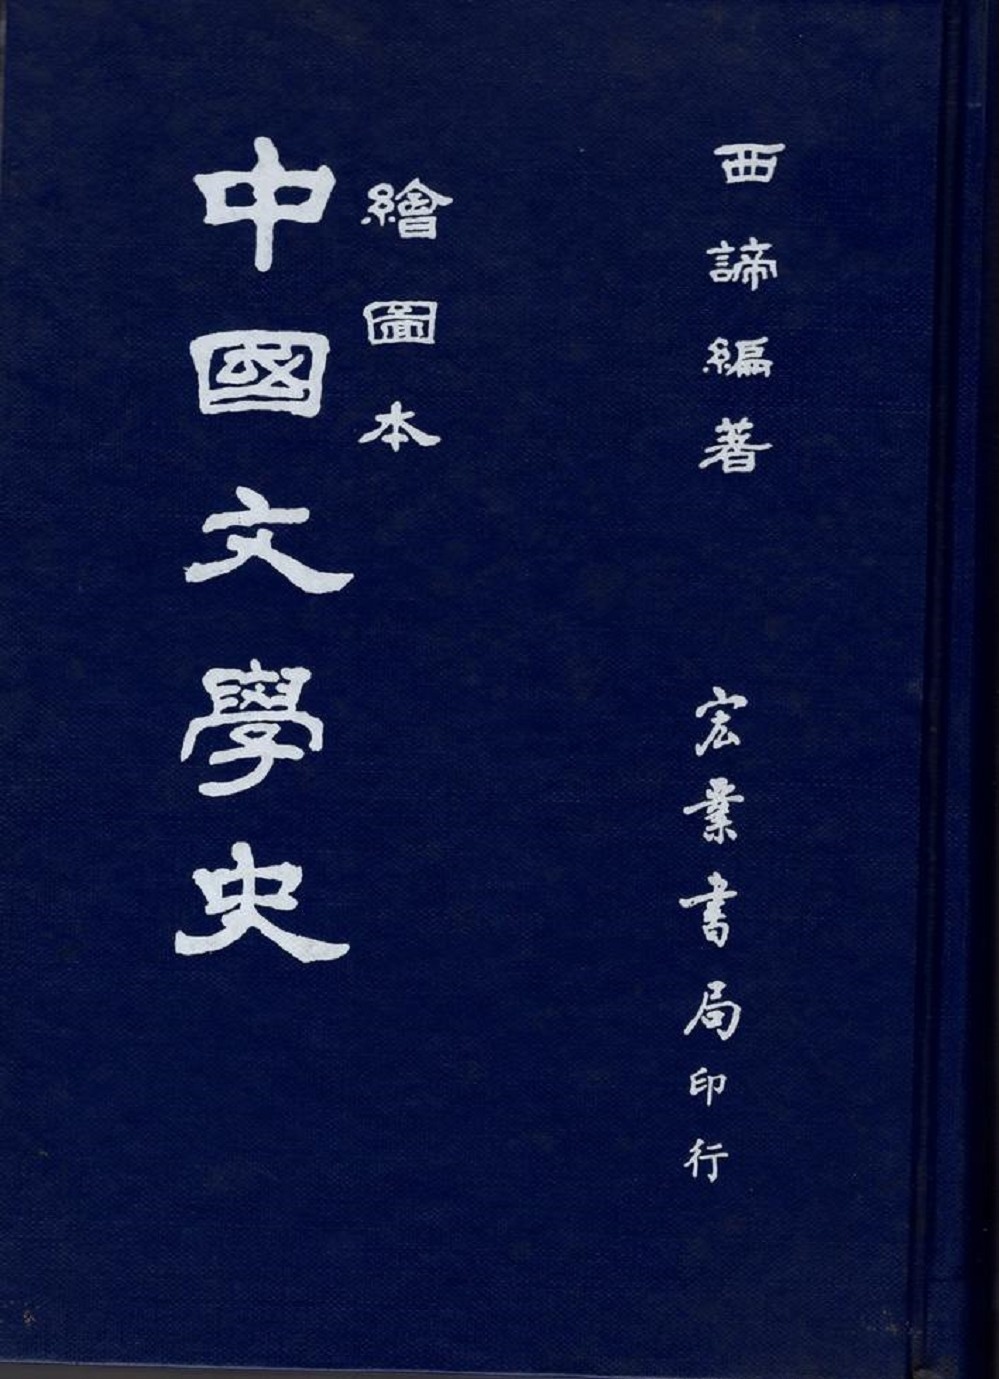 西諦編著
宏業書局印行
繪圖本
中國文學史